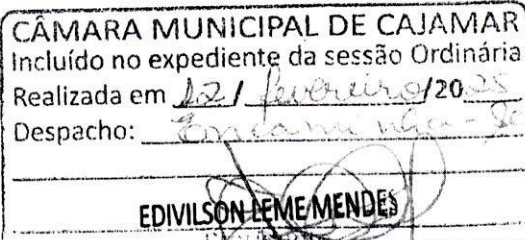 CÂMARA MUNICIPAL DE CAJAMAR
Incluído no expediente da sessão Ordinária
Realizada em 12 / fevereiro /20 25
Despacho: Encaminha-se
EDIVILSON LEME MENDES